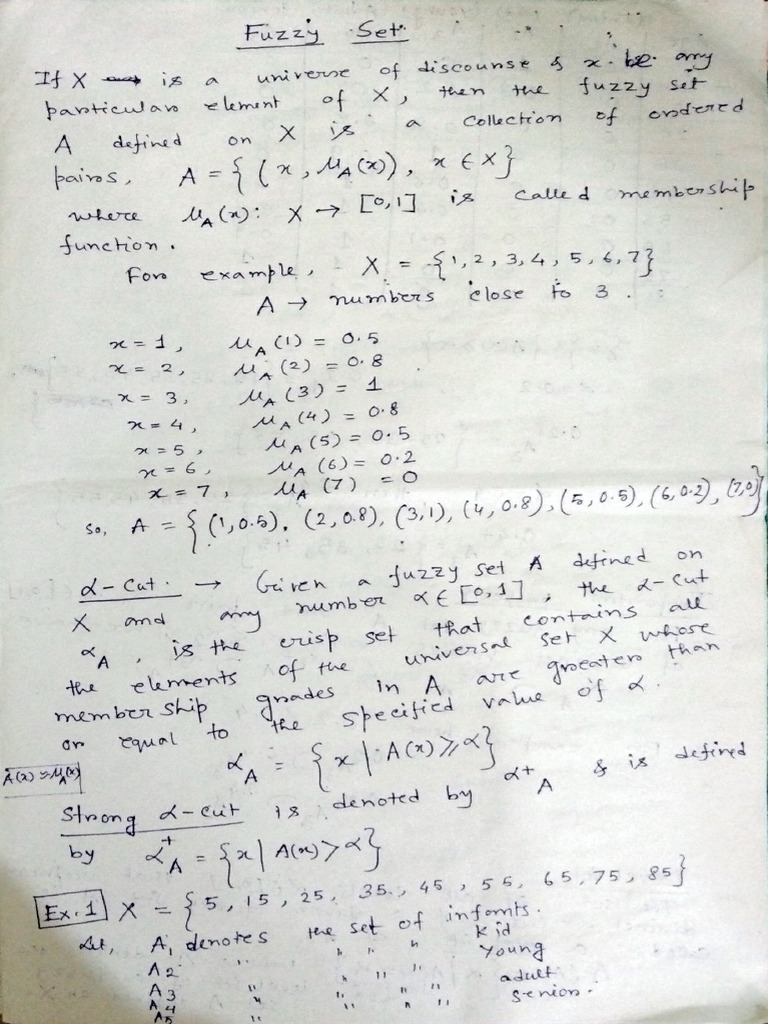 Fuzzy Set
If X is a universe of discourse & x be any
particular element of X, then the fuzzy set
A defined on X is a collection of ordered
pairs, A = { (x, μA(x)), x ∈ X}
where μA(x): X → [0,1] is called membership
function.
For example, X = {1, 2, 3, 4, 5, 6, 7}
A → numbers close to 3.
x = 1, μA(1) = 0.5
x = 2, μA(2) = 0.8
x = 3, μA(3) = 1
x = 4, μA(4) = 0.8
x = 5, μA(5) = 0.5
x = 6, μA(6) = 0.2
x = 7, μA(7) = 0
so, A = { (1,0.5), (2,0.8), (3,1), (4,0.8), (5,0.5), (6,0.2), (7,0)}
α-cut. → Given a fuzzy set A defined on
X and any number α ∈ [0,1], the α-cut
αA, is the crisp set that contains all
the elements of the universal set X whose
membership grades in A are greater than
or equal to the specified value of α.
αA = { x | A(x) ⩾ α}
A(x) ≈ μA(x)
Strong α-cut is denoted by α+A & is defined
by α+A = {x | A(x) > α}
Ex.1 X = { 5, 15, 25, 35, 45, 55, 65, 75, 85}
Let, A1 denotes the set of infants.
A2 " " " " kid
A3 " " " " young
A4 " " " " adult
A5 " senior.